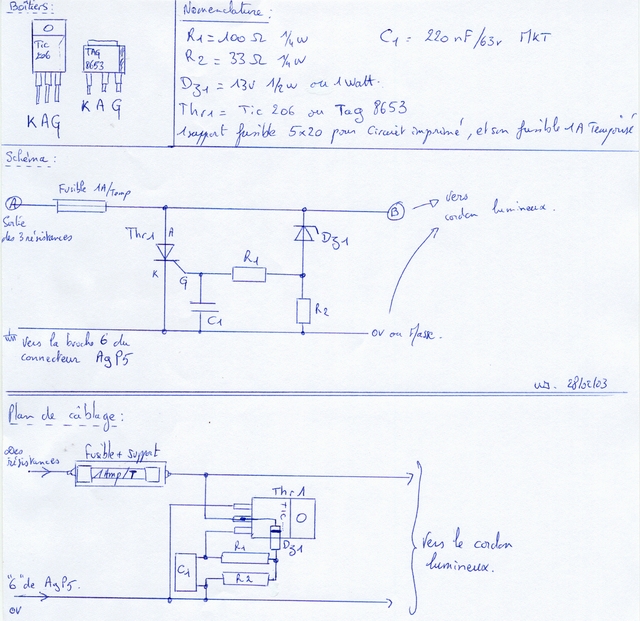 Boîtiers:
Tic
206
TAG
8653
KAG
K A G
Nomenclature:
R1 = 100 Ω 1/4 w
C1 = 220 nF/63v MKT
R2 = 33 Ω 1/4 w
Dz1 = 13v 1/2 w ou 1 watt.
Thr1 = Tic 206 ou Tag 8653
1 support fusible 5x20 pour Circuit imprimé, et son fusible 1A Temporisé
Schéma:
Fusible 1A/Temp
A
Sortie
des 3 résistances
B
vers
cordon lumineux.
Thr1
A
K
G
R1
Dz1
R2
C1
0v ou Masse.
vers la broche 6 du
connecteur AgP5
28/02/03
Plan de câblage:
Des
résistances
Fusible + support
1Amp/T
Thr1
TIC
Dz1
R1
C1
R2
"6" de AgP5.
0V
Vers le cordon
lumineux.